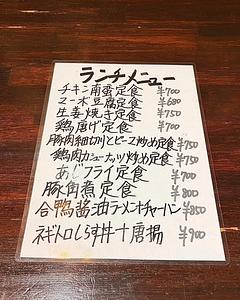 ランチメニュー
チキン南蛮定食 ¥700
マーボ豆腐定食 ¥680
生姜焼き定食 ¥750
鶏唐げ定食 ¥700
豚肉細切りとピース炒め定食 ¥750
鶏肉カシューナッツ炒め定食 ¥750
あじフライ定食 ¥700
豚角煮定食 ¥800
合鴨醬油ラーメンチャーハン ¥850
ネギトロしらす丼+唐揚 ¥900